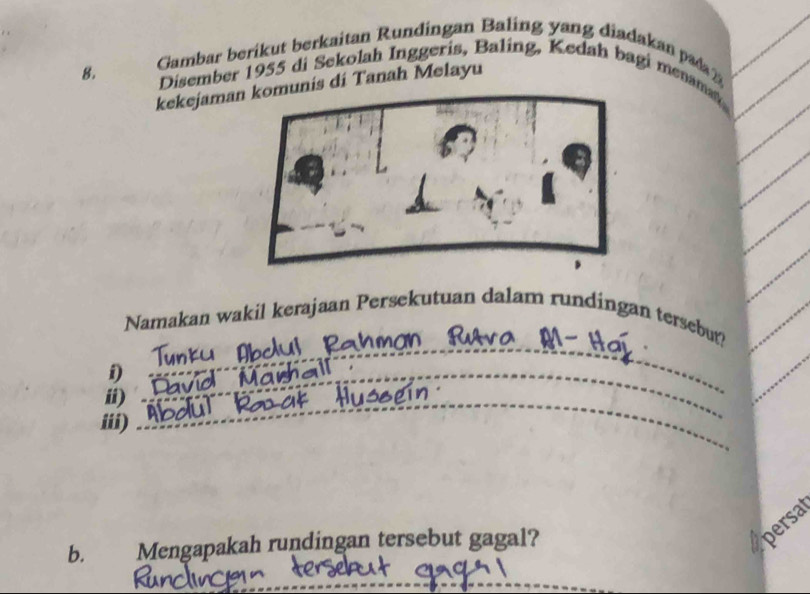 8. Gambar berikut berkaitan Rundingan Baling yang diadakan pada
Disember 1955 di Sekolah Inggeris, Baling, Kedah bagi
kekejaman komunis di Tanah Melayu
Namakan wakil kerajaan Persekutuan dalam rundingan tersebut?
i) Tunku Abdul Rahman Putra Al-Haj.
ii) David Marshall.
iii) Abdul Razak Hussein.
b. Mengapakah rundingan tersebut gagal?
Rundingan tersebut gagal
persat